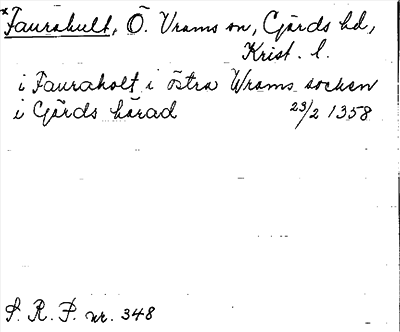 *Faurakult, Ö. Vrams sn, Gärds hd,
Krist. l.
i Fauraholt i östra Wrams socken
i Gärds härad 23/2 1358
S. R. P. nr. 348